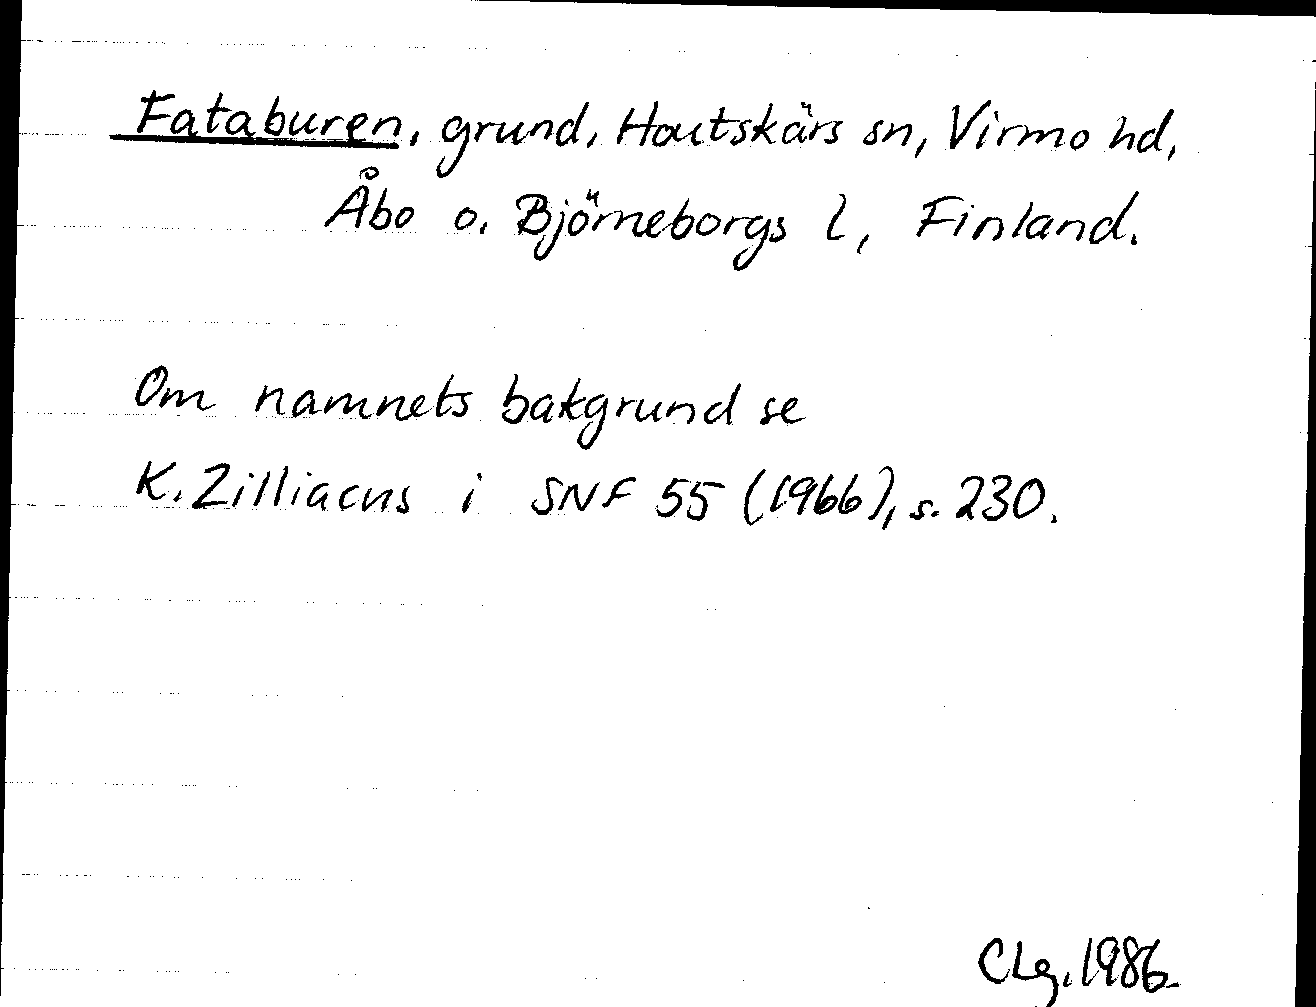 Fataburen, grund, Houtskärs sn, Virmo hd,
Åbo o. Björneborgs l, Finland.
Om namnets bakgrund se
K. Zilliacus i SNF 55 (1966), s. 230.
CLg. 1986.